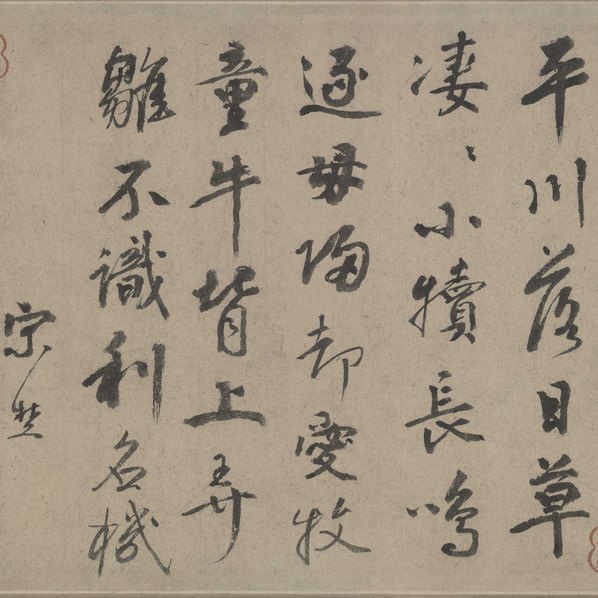 平川落日草
凄〻小犢長鳴
逐母歸却愛牧
童牛背上弄
雛不識利名機
宗